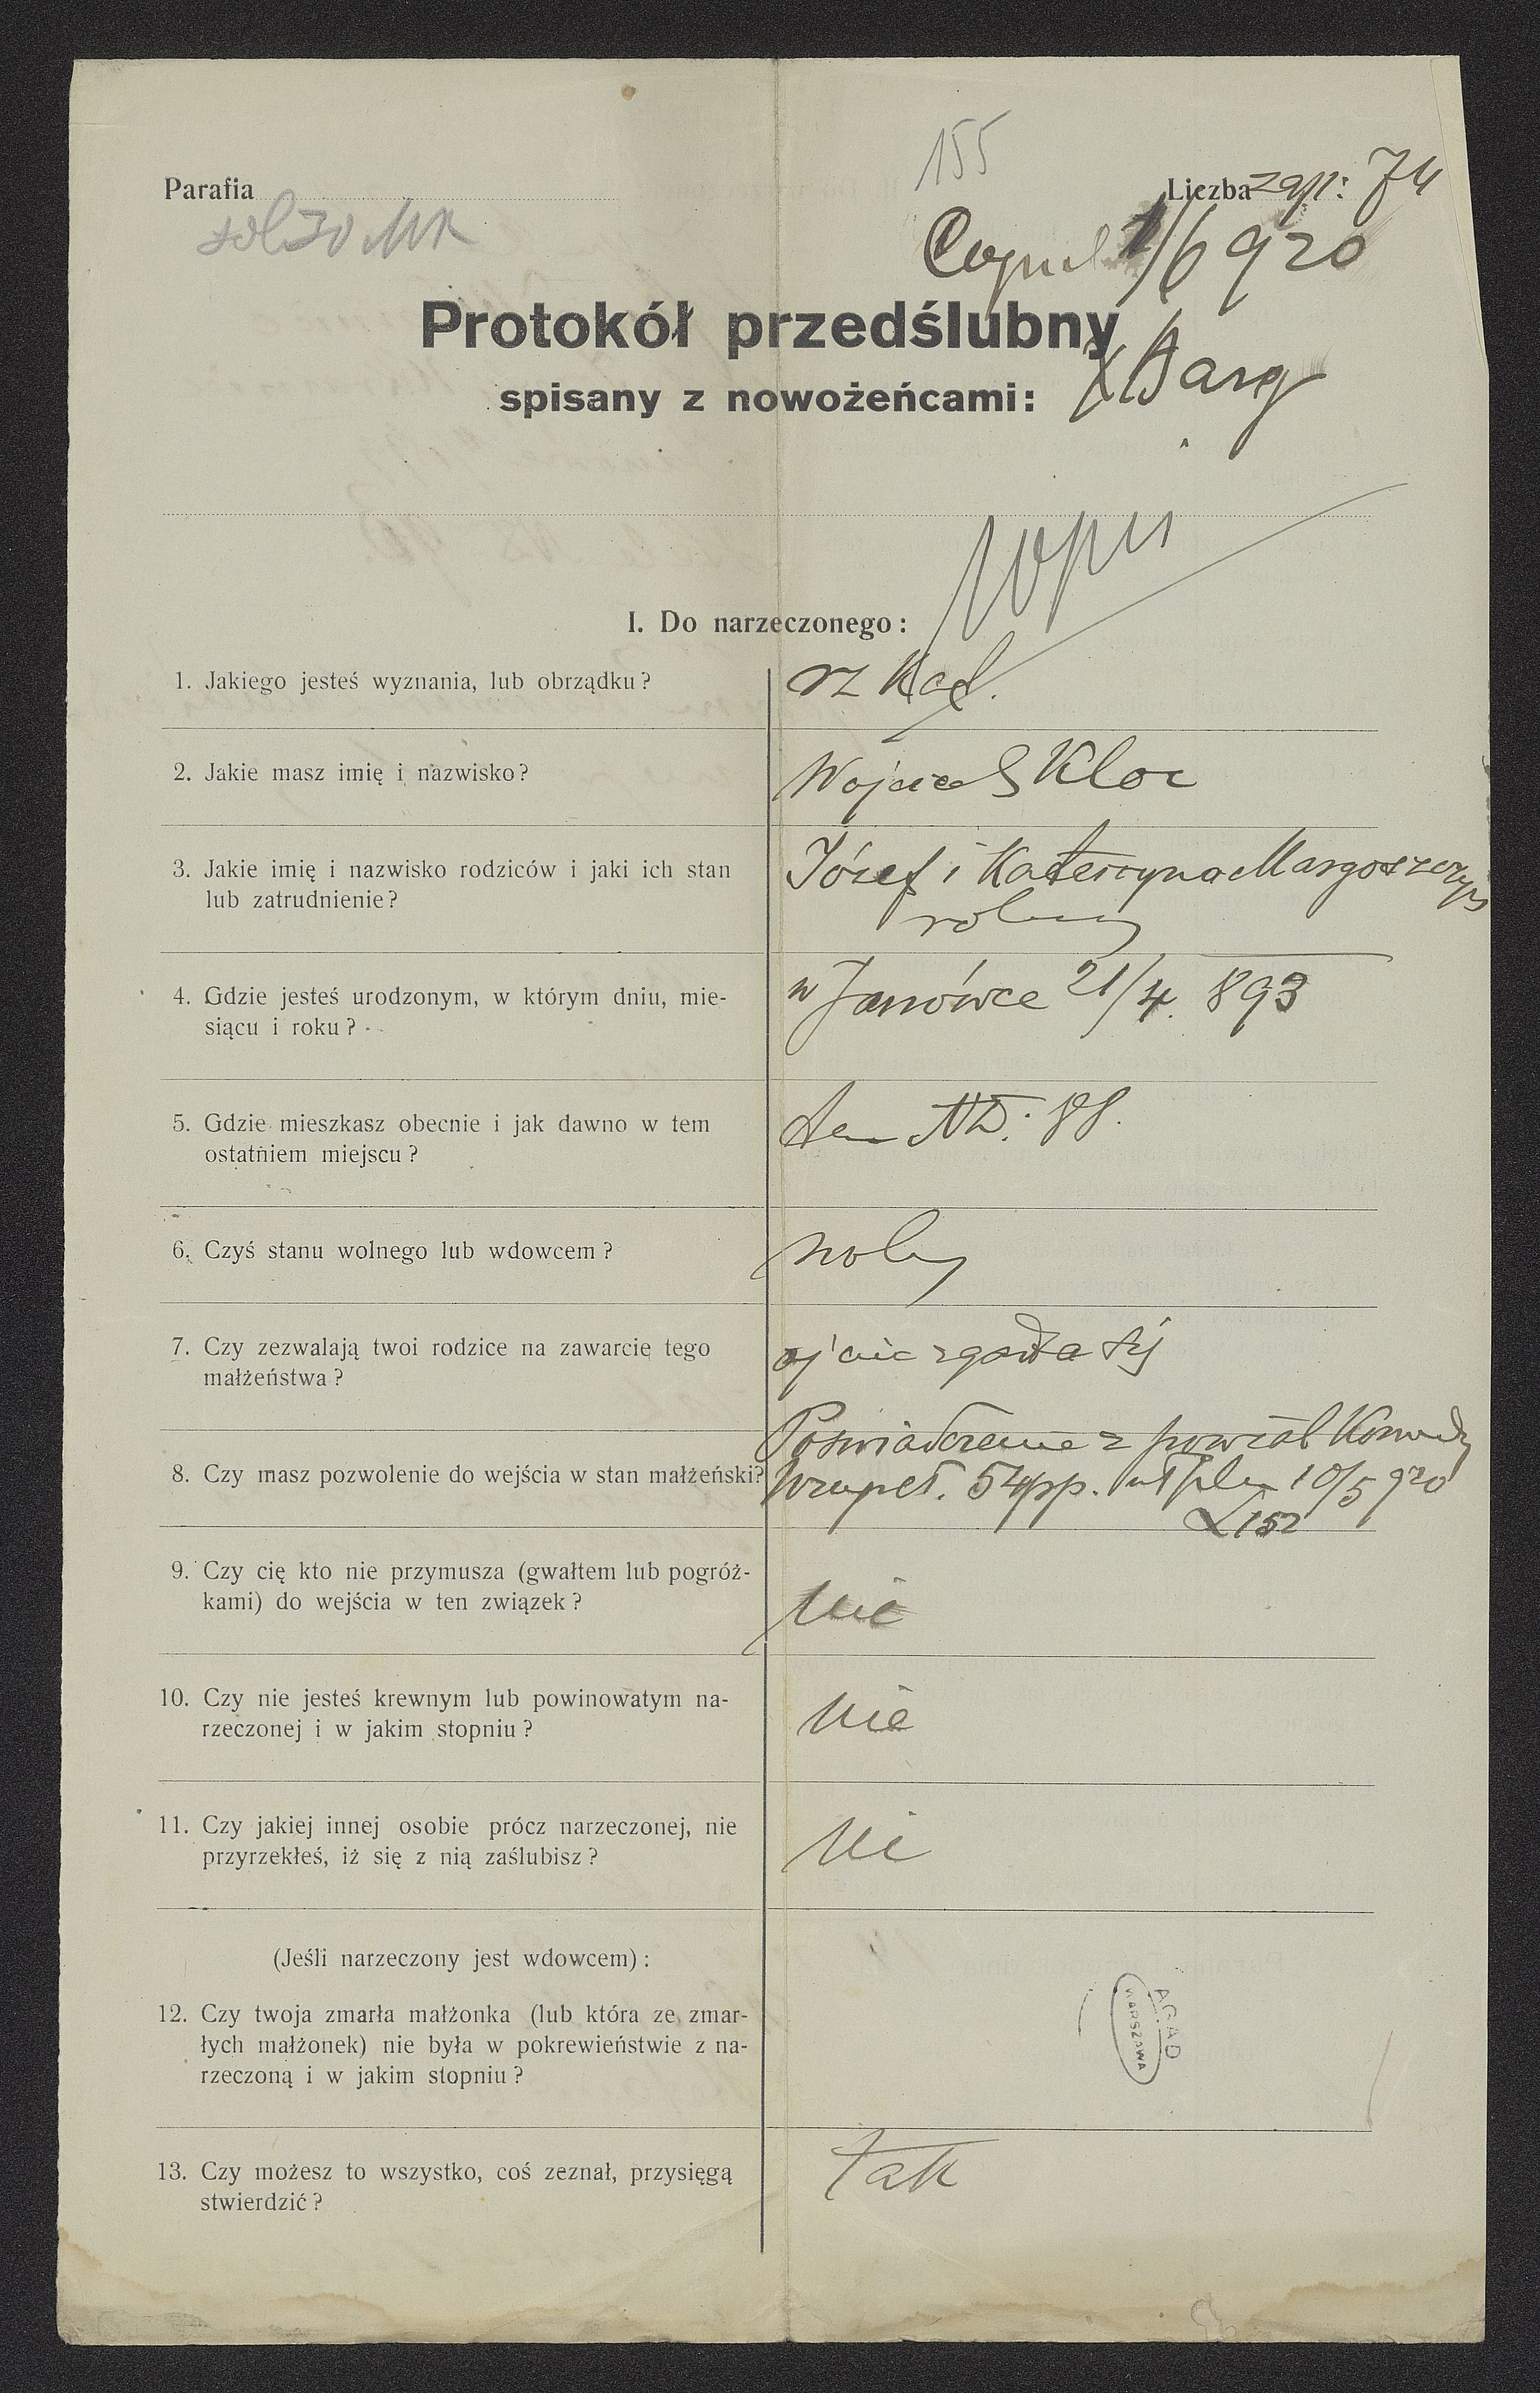 155
Parafia
Liczba zap: 74
1/6 920
Protokół przedślubny
spisany z nowożeńcami:
I. Do narzeczonego:
1. Jakiego jesteś wyznania, lub obrządku?
rz kat.
2. Jakie masz imię i nazwisko?
Wojciech Kloc
3. Jakie imię i nazwisko rodziców i jaki ich stan
lub zatrudnienie?
Józef i Katarzyna
rolnicy
4. Gdzie jesteś urodzonym, w którym dniu, mie-
siącu i roku?
w Janówce 21/4. 893
5. Gdzie mieszkasz obecnie i jak dawno w tem
ostatniem miejscu?
ND: 88.
6. Czyś stanu wolnego lub wdowcem?
wolny
7. Czy zezwalają twoi rodzice na zawarcie tego
małżeństwa?
ojciec zgadza się
8. Czy masz pozwolenie do wejścia w stan małżeński?
Poświadczenie z powiat Komendy
Uzupeł. 54 pp. 10/5 920
L 152
9. Czy cię kto nie przymusza (gwałtem lub pogróż-
kami) do wejścia w ten związek?
nie
10. Czy nie jesteś krewnym lub powinowatym na-
rzeczonej i w jakim stopniu?
nie
11. Czy jakiej innej osobie prócz narzeczonej, nie
przyrzekłeś, iż się z nią zaślubisz?
nie
(Jeśli narzeczony jest wdowcem):
12. Czy twoja zmarła małżonka (lub która ze zmar-
łych małżonek) nie była w pokrewieństwie z na-
rzeczoną i w jakim stopniu?
AGAD
WARSZAWA
13. Czy możesz to wszystko, coś zeznał, przysięgą
stwierdzić?
tak